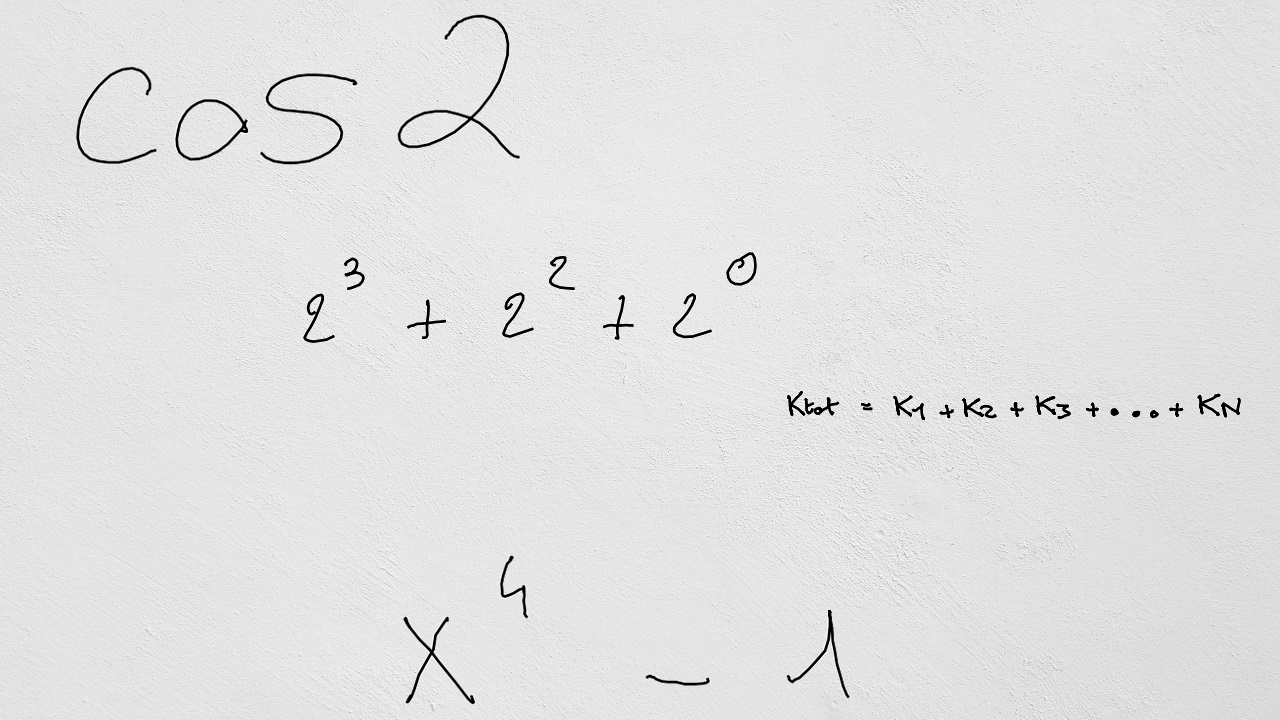 cos 2
2^3 + 2^2 + 2^0
Ktot = K1 + K2 + K3 + ... + KN
X^4 - 1